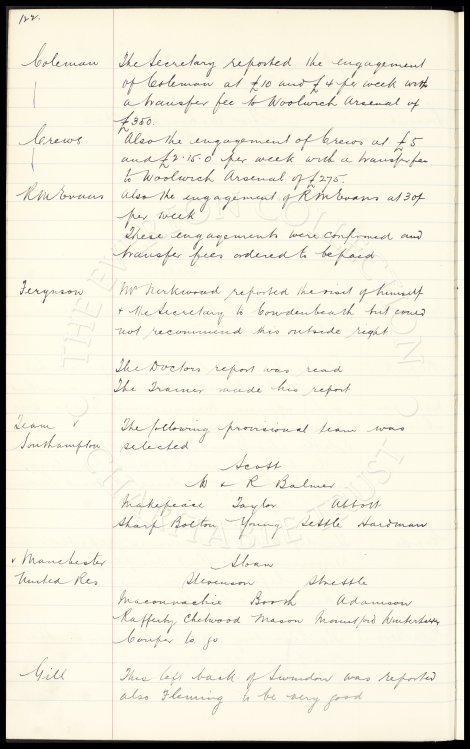 122.
Coleman The Secretary reported the engagement
of Coleman at £10 and £4 per week with
a transfer fee to Woolwich Arsenal of
£350.
Crews Also the engagement of Crews at £5
and £2.15.0 per week with a transfer fee
to Woolwich Arsenal of £275.
R M Evans Also the engagement of R M Evans at 30/-
per week
These engagements were confirmed and
transfer fees ordered to be paid
Fergusson Mr Kirkwood reported the visit of himself
+ the Secretary to Cowdenbeath but could
not recommend this outside right
The Doctors report was read
The Trainer made his report
Team v The following provisional team was
Southampton selected
Scott
W & R Balmer
Makepeace Taylor Abbott
Sharp Bolton Young Settle Hardman
v Manchester Sloan
United Res Stevenson Strettle
Maconnachie Booth Adamson
Rafferty Chetwood Mason Mountford
Couper to go
Gill This left back of Swindon was reported
also Fleming to be very good
THE EVERTON COLLECTION
CHARITABLE TRUST